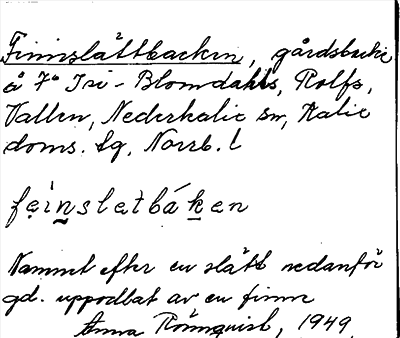 Finnslåttbacken, gårdsbacke
å 7² Isi-Blomdahls, Rolfs,
Vallen, Nederkalix sn, Kalix
doms. tg, Norrb. l
feinsletbáken
Namnet efter en slått nedanför
gd. uppodlat av en finne
Anna Rönnqvist, 1949